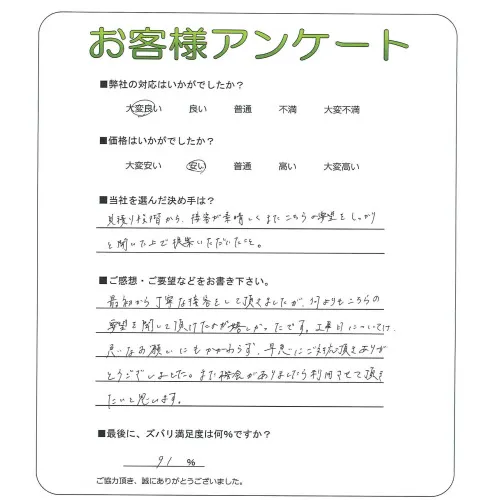 お客様アンケート
■弊社の対応はいかがでしたか？
大変良い 良い 普通 不満 大変不満
■価格はいかがでしたか？
大変安い 安い 普通 高い 大変高い
■当社を選んだ決め手は？
見積り段階から、接客が素晴しくまたこちらの要望をしっかり
と聞いた上で提案いただいたこと。
■ご感想・ご要望などをお書き下さい。
最初から丁寧な接客をして頂きましたが、何よりもこちらの
要望を聞して頂けたのが嬉しかったです。工事日については、
急なお願いにもかかわらず、早急にご対応頂きありが
とうございました。また機会がありましたら利用させて頂き
たいと思います。
■最後に、ズバリ満足度は何%ですか？
91 %
ご協力頂き、誠にありがとうございました。